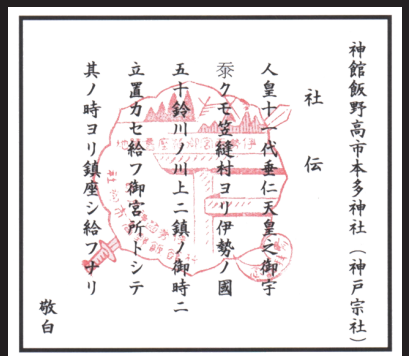 神館飯野高市本多神社（神戸宗社）
社伝
人皇十一代垂仁天皇之御宇
忝クモ笠縫村ヨリ伊勢ノ國
五十鈴川川上ニ鎮御時ニ
立置カセ給フ御宮所トシテ
其ノ時ヨリ鎮座シ給フナリ
敬白